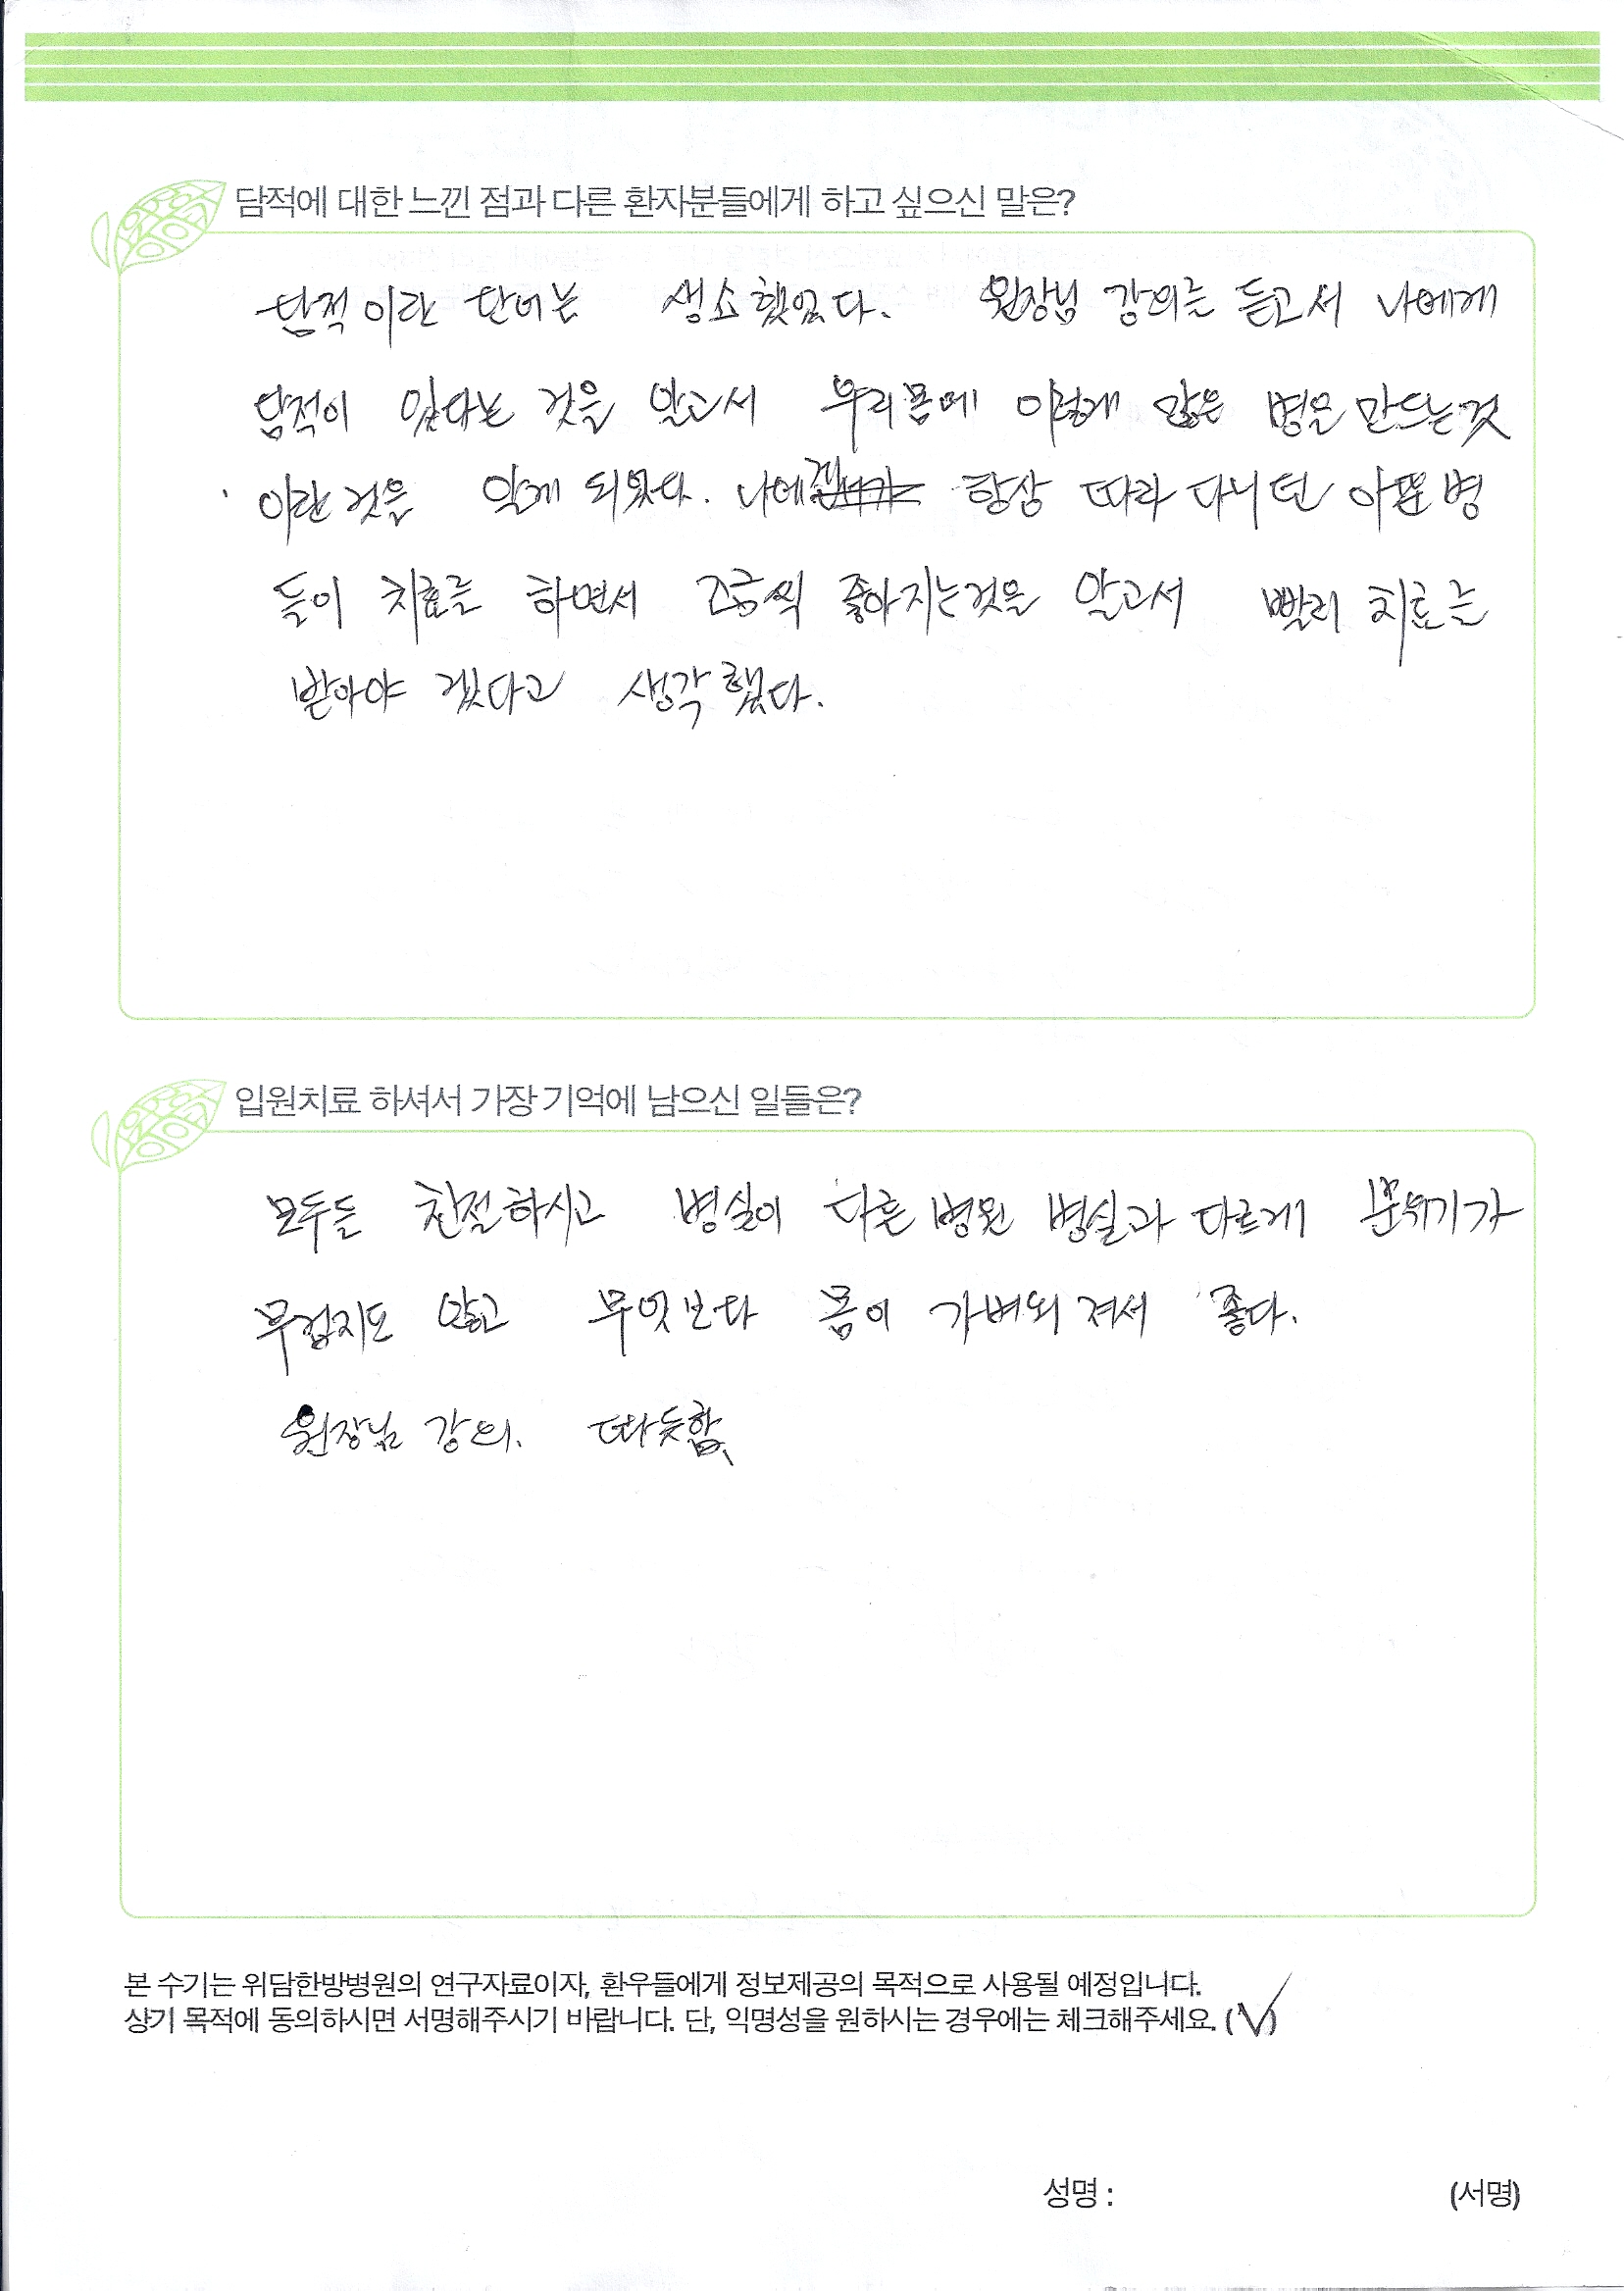 담적에 대한 느낀 점과 다른 환자분들에게 하고 싶으신 말은?
담적이란 단어는 생소했었다. 원장님 강의를 듣고서 나에게
담적이 있다는 것을 알고서 우리몸에 이렇게 많은 병을 만드는것
이란 것을 알게 되었다. 나에겐 항상 따라 다니던 아픈 병
들이 치료를 하면서 조금씩 좋아지는것을 알고서 빨리 치료를
받아야 겠다고 생각했다.
입원치료 하셔서 가장 기억에 남으신 일들은?
모두들 친절하시고 병실이 다른 병원 병실과 다르게 분위기가
무겁지도 않고 무엇보다 몸이 가벼워 져서 좋다.
원장님 강의. 따뜻함.
본 수기는 위담한방병원의 연구자료이자, 환우들에게 정보제공의 목적으로 사용될 예정입니다.
상기 목적에 동의하시면 서명해주시기 바랍니다. 단, 익명성을 원하시는 경우에는 체크해주세요. (√)
성명 : (서명)